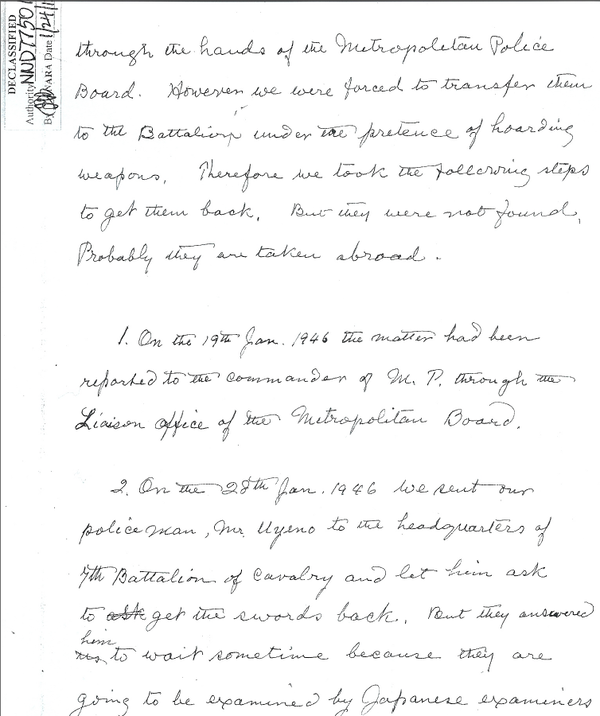 DECLASSIFIED
Authority NND 77501
By NARA Date 1/24/1
through the hands of the Metropolitan Police
Board. However we were forced to transfer them
to the Battalion under the pretence of hoarding
weapons. Therefore we took the following steps
to get them back. But they were not found.
Probably they are taken abroad.
1. On the 19th Jan. 1946 the matter had been
reported to the commander of M. P. through the
Liaison office of the Metropolitan Board.
2. On the 28th Jan. 1946 we sent our
police man, Mr. Uyeno to the headquarters of
7th Battalion of Cavalry and let him ask
to ask get the swords back. But they answered
him
to wait sometime because they are
going to be examined by Japanese examiners